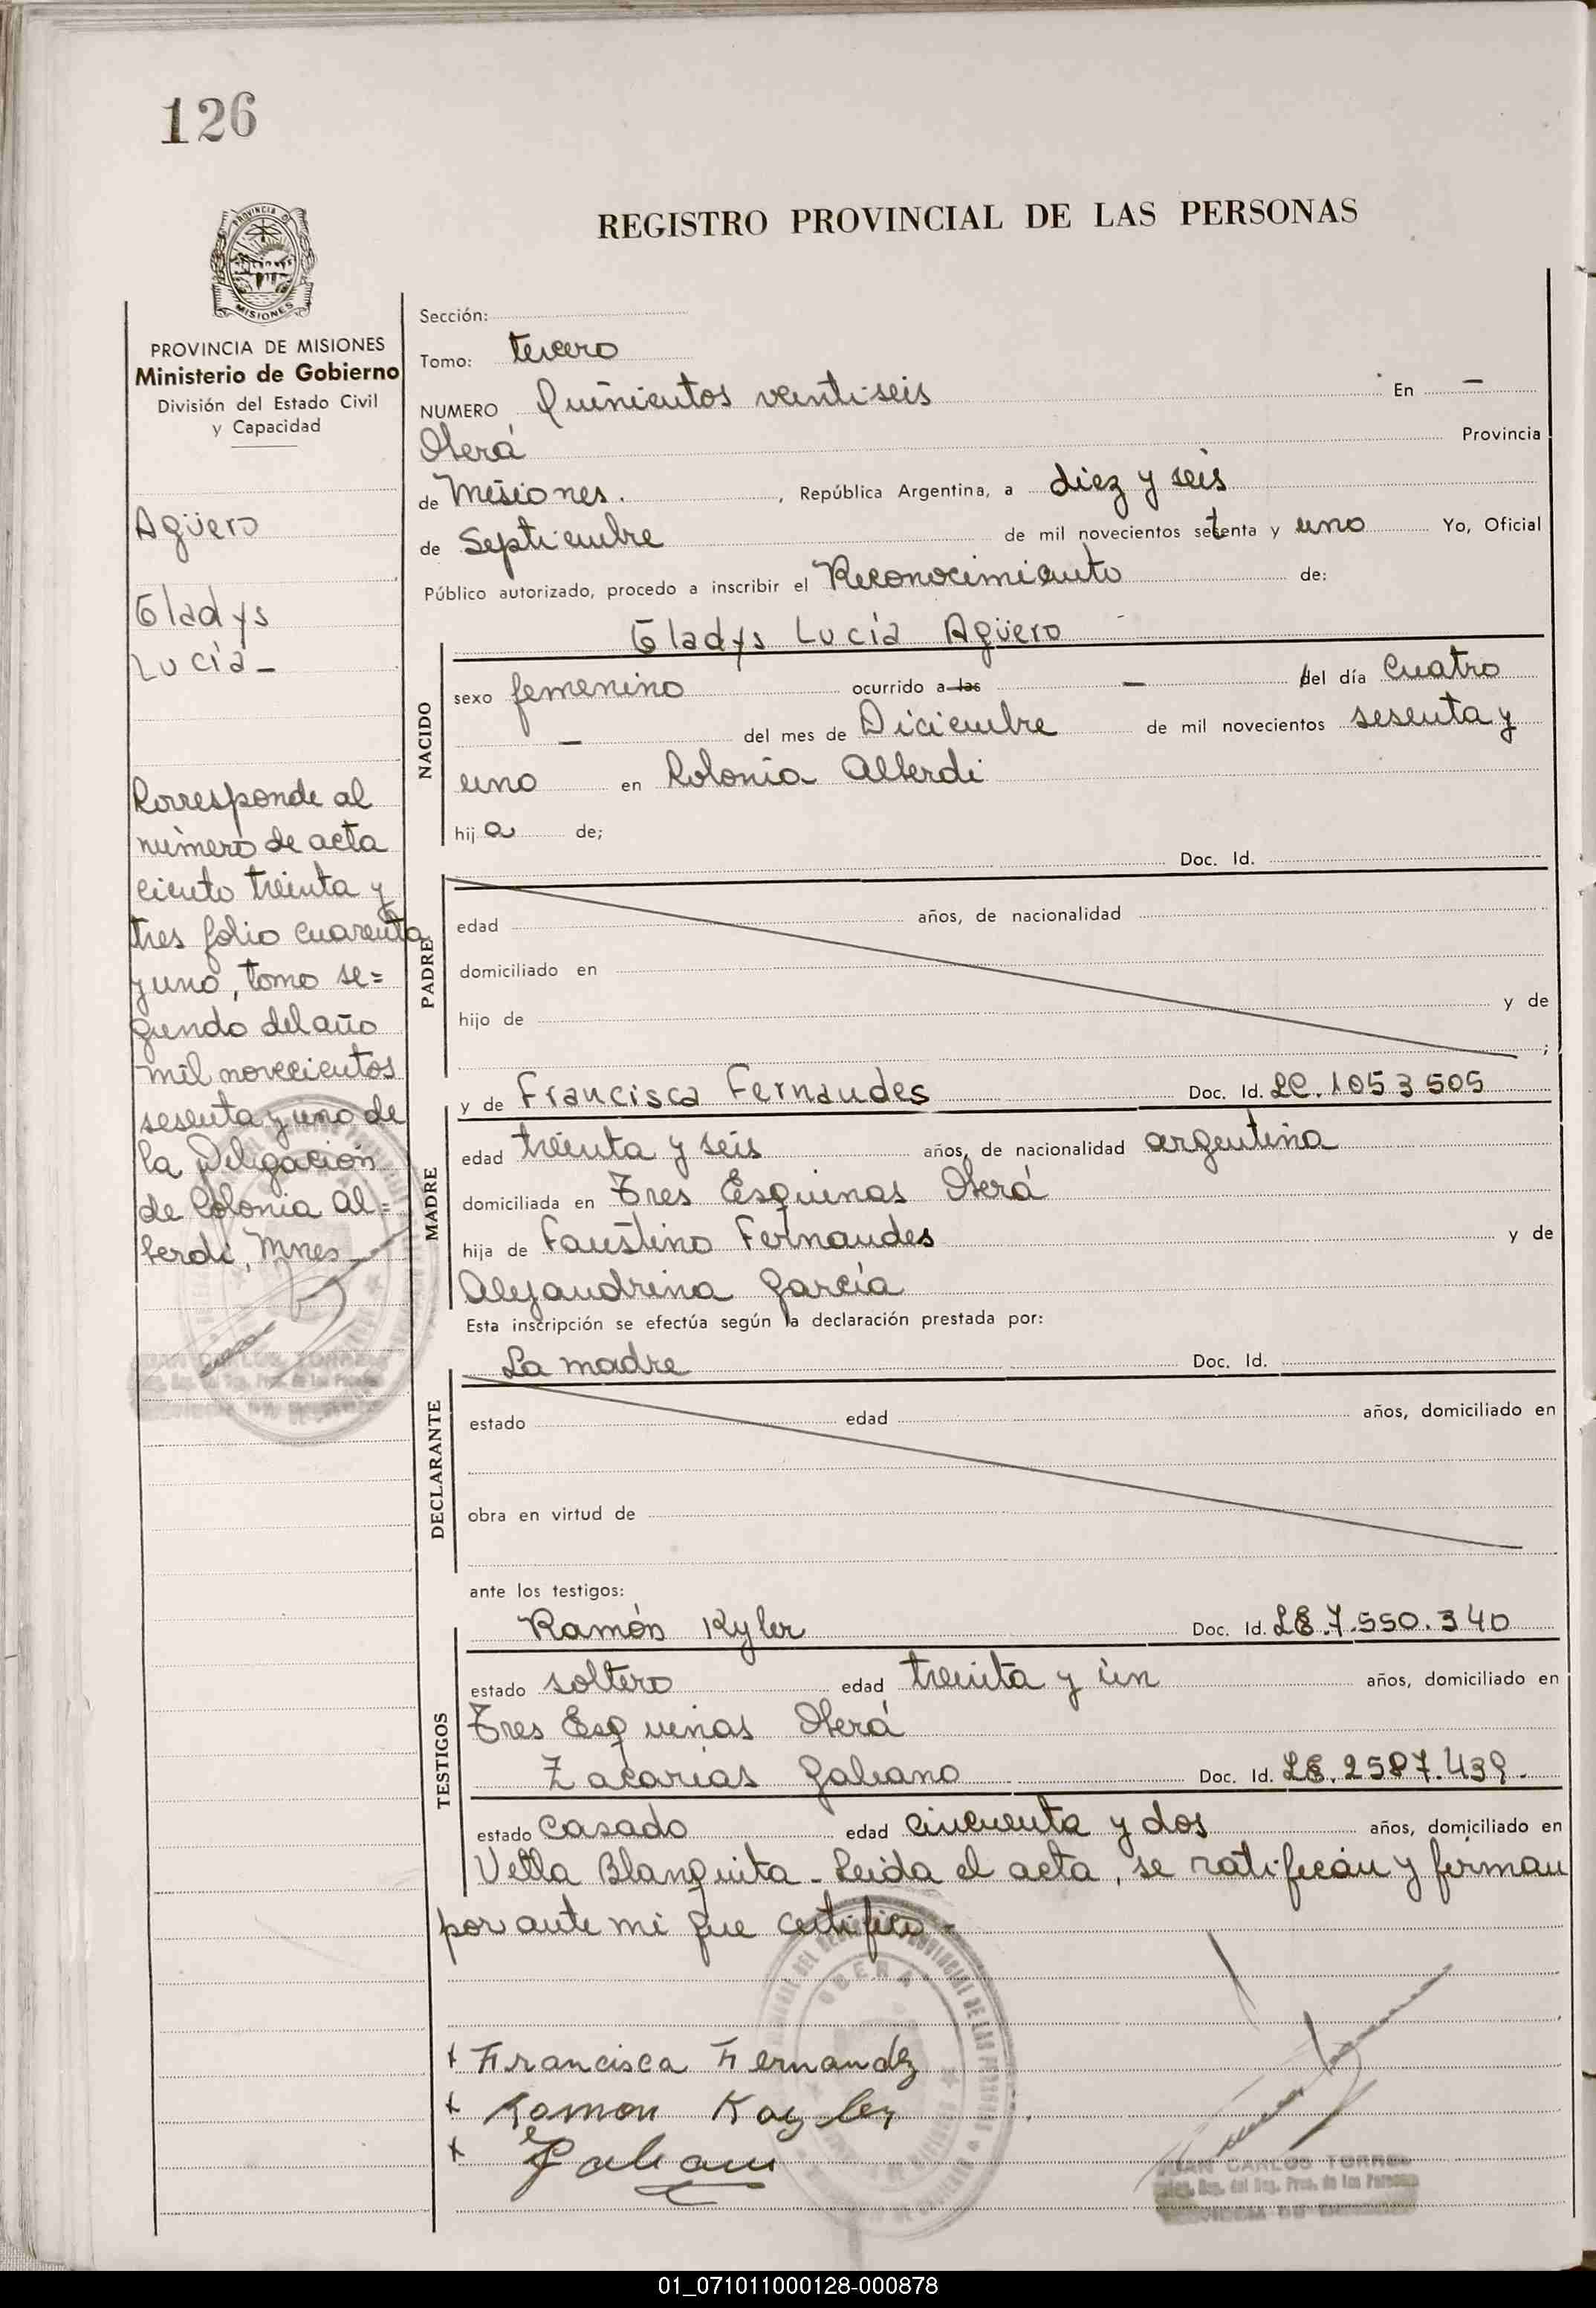 126
REGISTRO PROVINCIAL DE LAS PERSONAS
PROVINCIA DE MISIONES
PROVINCIA DE MISIONES
Ministerio de Gobierno
División del Estado Civil
y Capacidad
Agüero
Gladys
Lucía-
Corresponde al
número de acta
ciento treinta y
tres folio cuarenta
y uno, tomo se=
gundo del año
mil novecientos
sesenta y uno de
la Delegación
de Colonia Al=
berdi, Mnes
Sección:
Tomo: tercero
NUMERO Quinientos veintiseis En -
Oberá Provincia
de Misiones. , República Argentina, a diez y seis
de Septiembre de mil novecientos setenta y uno Yo, Oficial
Público autorizado, procedo a inscribir el Reconocimiento de:
Gladys Lucía Agüero -
NACIDO
sexo femenino ocurrido a las - del día Cuatro
- del mes de Diciembre de mil novecientos sesenta y
uno en Colonia Alberdi
hija de;
Doc. Id.
PADRE
edad años, de nacionalidad
domiciliado en
hijo de y de
;
y de Francisca Fernandes Doc. Id. LC. 1053505
MADRE
edad treinta y seis años, de nacionalidad argentina
domiciliada en Tres Esquinas Oberá
hija de Faustino Fernandes y de
Alejandrina García
Esta inscripción se efectúa según la declaración prestada por:
La madre Doc. Id.
DECLARANTE
estado edad años, domiciliado en
obra en virtud de
ante los testigos:
Ramón Kyler Doc. Id. LE.7.550.340
TESTIGOS
estado soltero edad treinta y un años, domiciliado en
Tres Esquinas Oberá
Zacarias Galeano Doc. Id. LE. 2587.439.
estado Casado edad cincuenta y dos años, domiciliado en
Villa Blanquita - Leida el acta, se ratifican y firman
por ante mi que certifico-
OBERA
x Francisca Fernandez
x Ramon Kayler
x Galeano
JUAN CARLOS TORRES
01_071011000128-000878